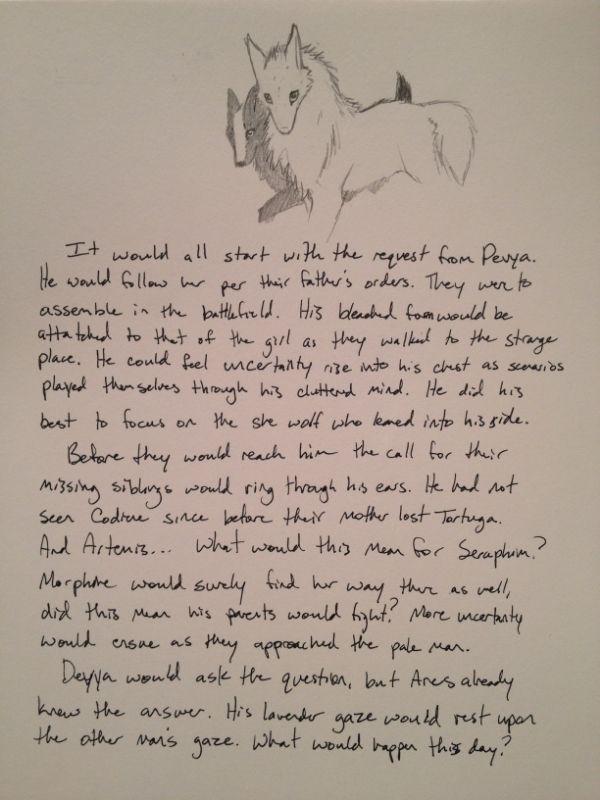 It would all start with the request from Pevya.
He would follow her per their father's orders. They were to
assemble in the battlefield. His bleached form would be
attatched to that of the girl as they walked to the strange
place. He could feel uncertainty rise into his chest as scenarios
played themselves through his cluttered mind. He did his
best to focus on the she wolf who leaned into his side.
Before they would reach him the call for their
missing siblings would ring through his ears. He had not
seen Codiene since before their mother lost Tortuga.
And Artemis... What would this mean for Seraphim?
Morphine would surely find her way there as well,
did this mean his parents would fight? More uncertainty
would ensue as they approached the pale man.
Devya would ask the question, but Ares already
knew the answer. His lavender gaze would rest upon
the other man's gaze. What would happen this day?